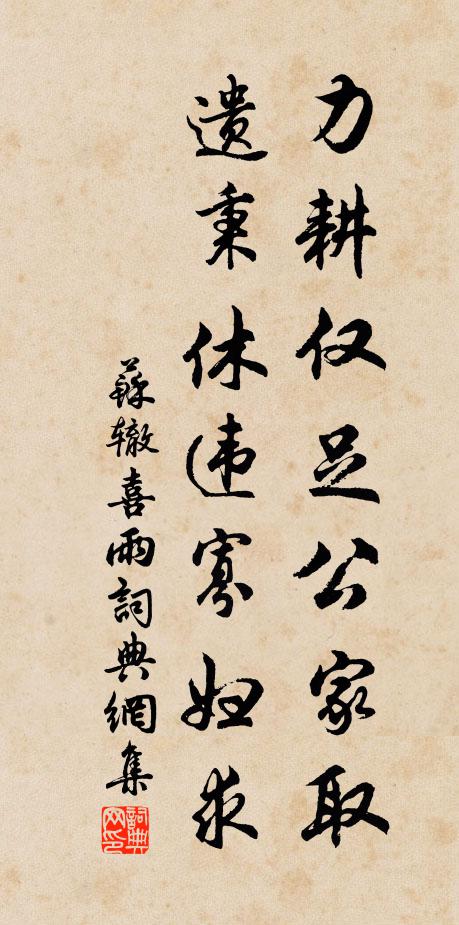 力耕仅足公家取
遗秉休违寡妇求
蘇辙喜雨詞典網集
詞典网印